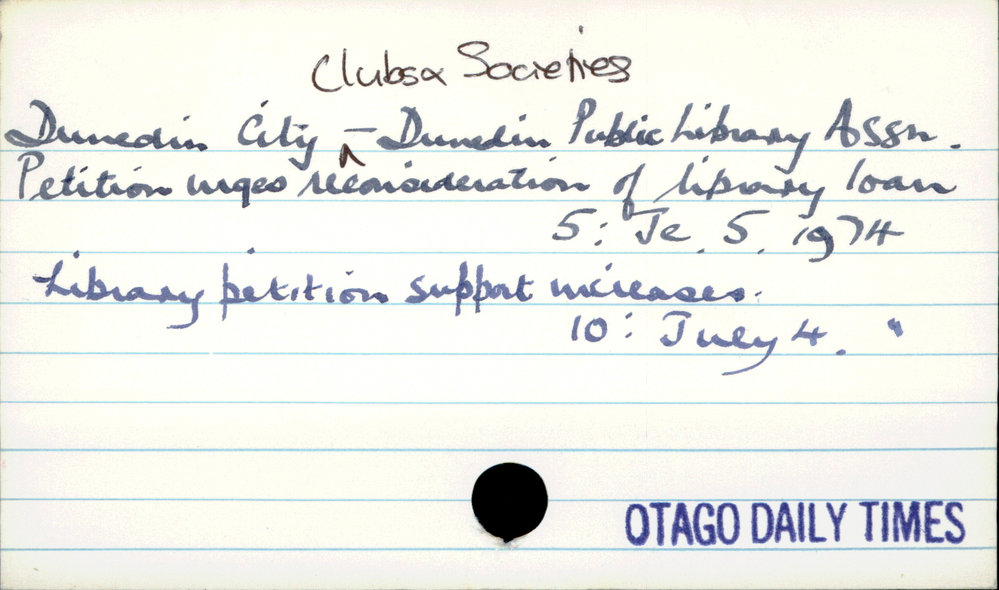 Clubs & Societies
Dunedin City ^ - Dunedin Public Library Assn.
Petition urges reconsideration of library loan
5: Je. 5. 1974
Library petition support increases.
10: July 4. "
OTAGO DAILY TIMES